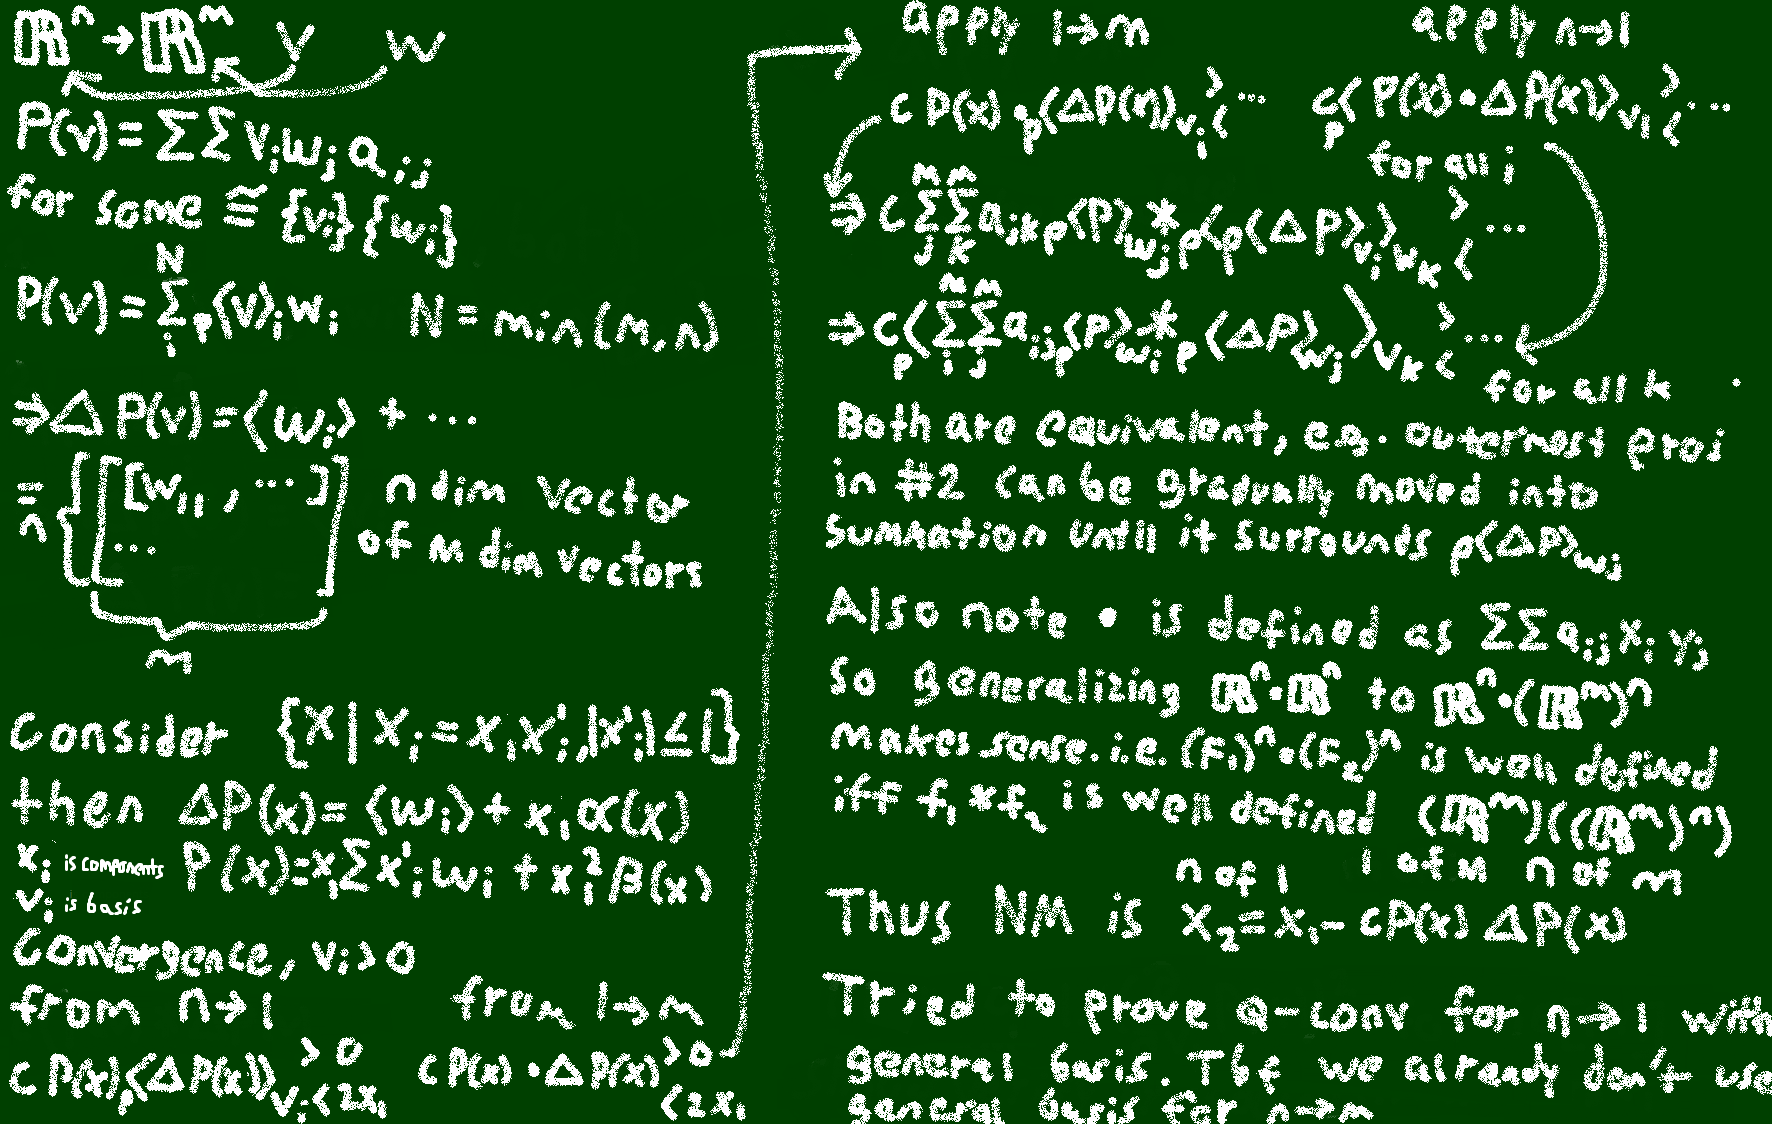 ℝⁿ → ℝᵐ v w
P(v) = ΣΣ vᵢwⱼaᵢⱼ
for some ≅ {vᵢ} {wᵢ}
P(v) = Σᵢᴺ ₚ⟨v⟩ᵢwᵢ N = min(m,n)
⇒ΔP(v) = ⟨wᵢ⟩ + ...
= n { [[w₁₁, ...] ...] n dim vector
of m dim vectors
m
Consider {x | xᵢ = x₁x'ᵢ, |x'ᵢ| ≤ 1}
then ΔP(x) = ⟨wᵢ⟩ + x₁α(x)
xᵢ is components P(x) = x₁Σx'ᵢwᵢ + x₁²β(x)
vᵢ is basis
Convergence, vᵢ > 0
from n→1 from 1→m
c P(x) ₚ⟨ΔP(x)⟩vᵢ > 0 < 2x₁ c P(x) • ΔP(x) > 0 < 2x₁
apply 1→m apply n→1
c P(x) • ₚ⟨ΔP(x)⟩vᵢ > < ... c ₚ⟨P(x) • ΔP(x)⟩vᵢ > < ...
for all i
⇒ c Σⱼᵐ Σₖᵐ aⱼₖ ₚ⟨P⟩wⱼ * ₚ⟨ₚ⟨ΔP⟩vᵢ⟩wₖ > < ...
⇒ c ₚ⟨Σᵢᵐ Σⱼᵐ aᵢⱼ ₚ⟨P⟩wᵢ * ₚ⟨ΔP⟩wⱼ⟩vₖ > < ...
for all k
Both are equivalent, e.g. outermost proj
in #2 can be gradually moved into
summation until it surrounds ₚ⟨ΔP⟩wⱼ
Also note • is defined as ΣΣ aᵢⱼ xᵢ yⱼ
so generalizing ℝⁿ•ℝⁿ to ℝⁿ•(ℝᵐ)ⁿ
makes sense. i.e. (F₁)ⁿ•(F₂)ⁿ is well defined
iff f₁*f₂ is well defined (ℝᵐ)((ℝᵐ)ⁿ)
n of 1 1 of m n of m
Thus NM is x₂ = x₁ - cP(x) ΔP(x)
Tried to prove Q-conv for n→1 with
general basis. Tbf we already don't use
general basis for n→m